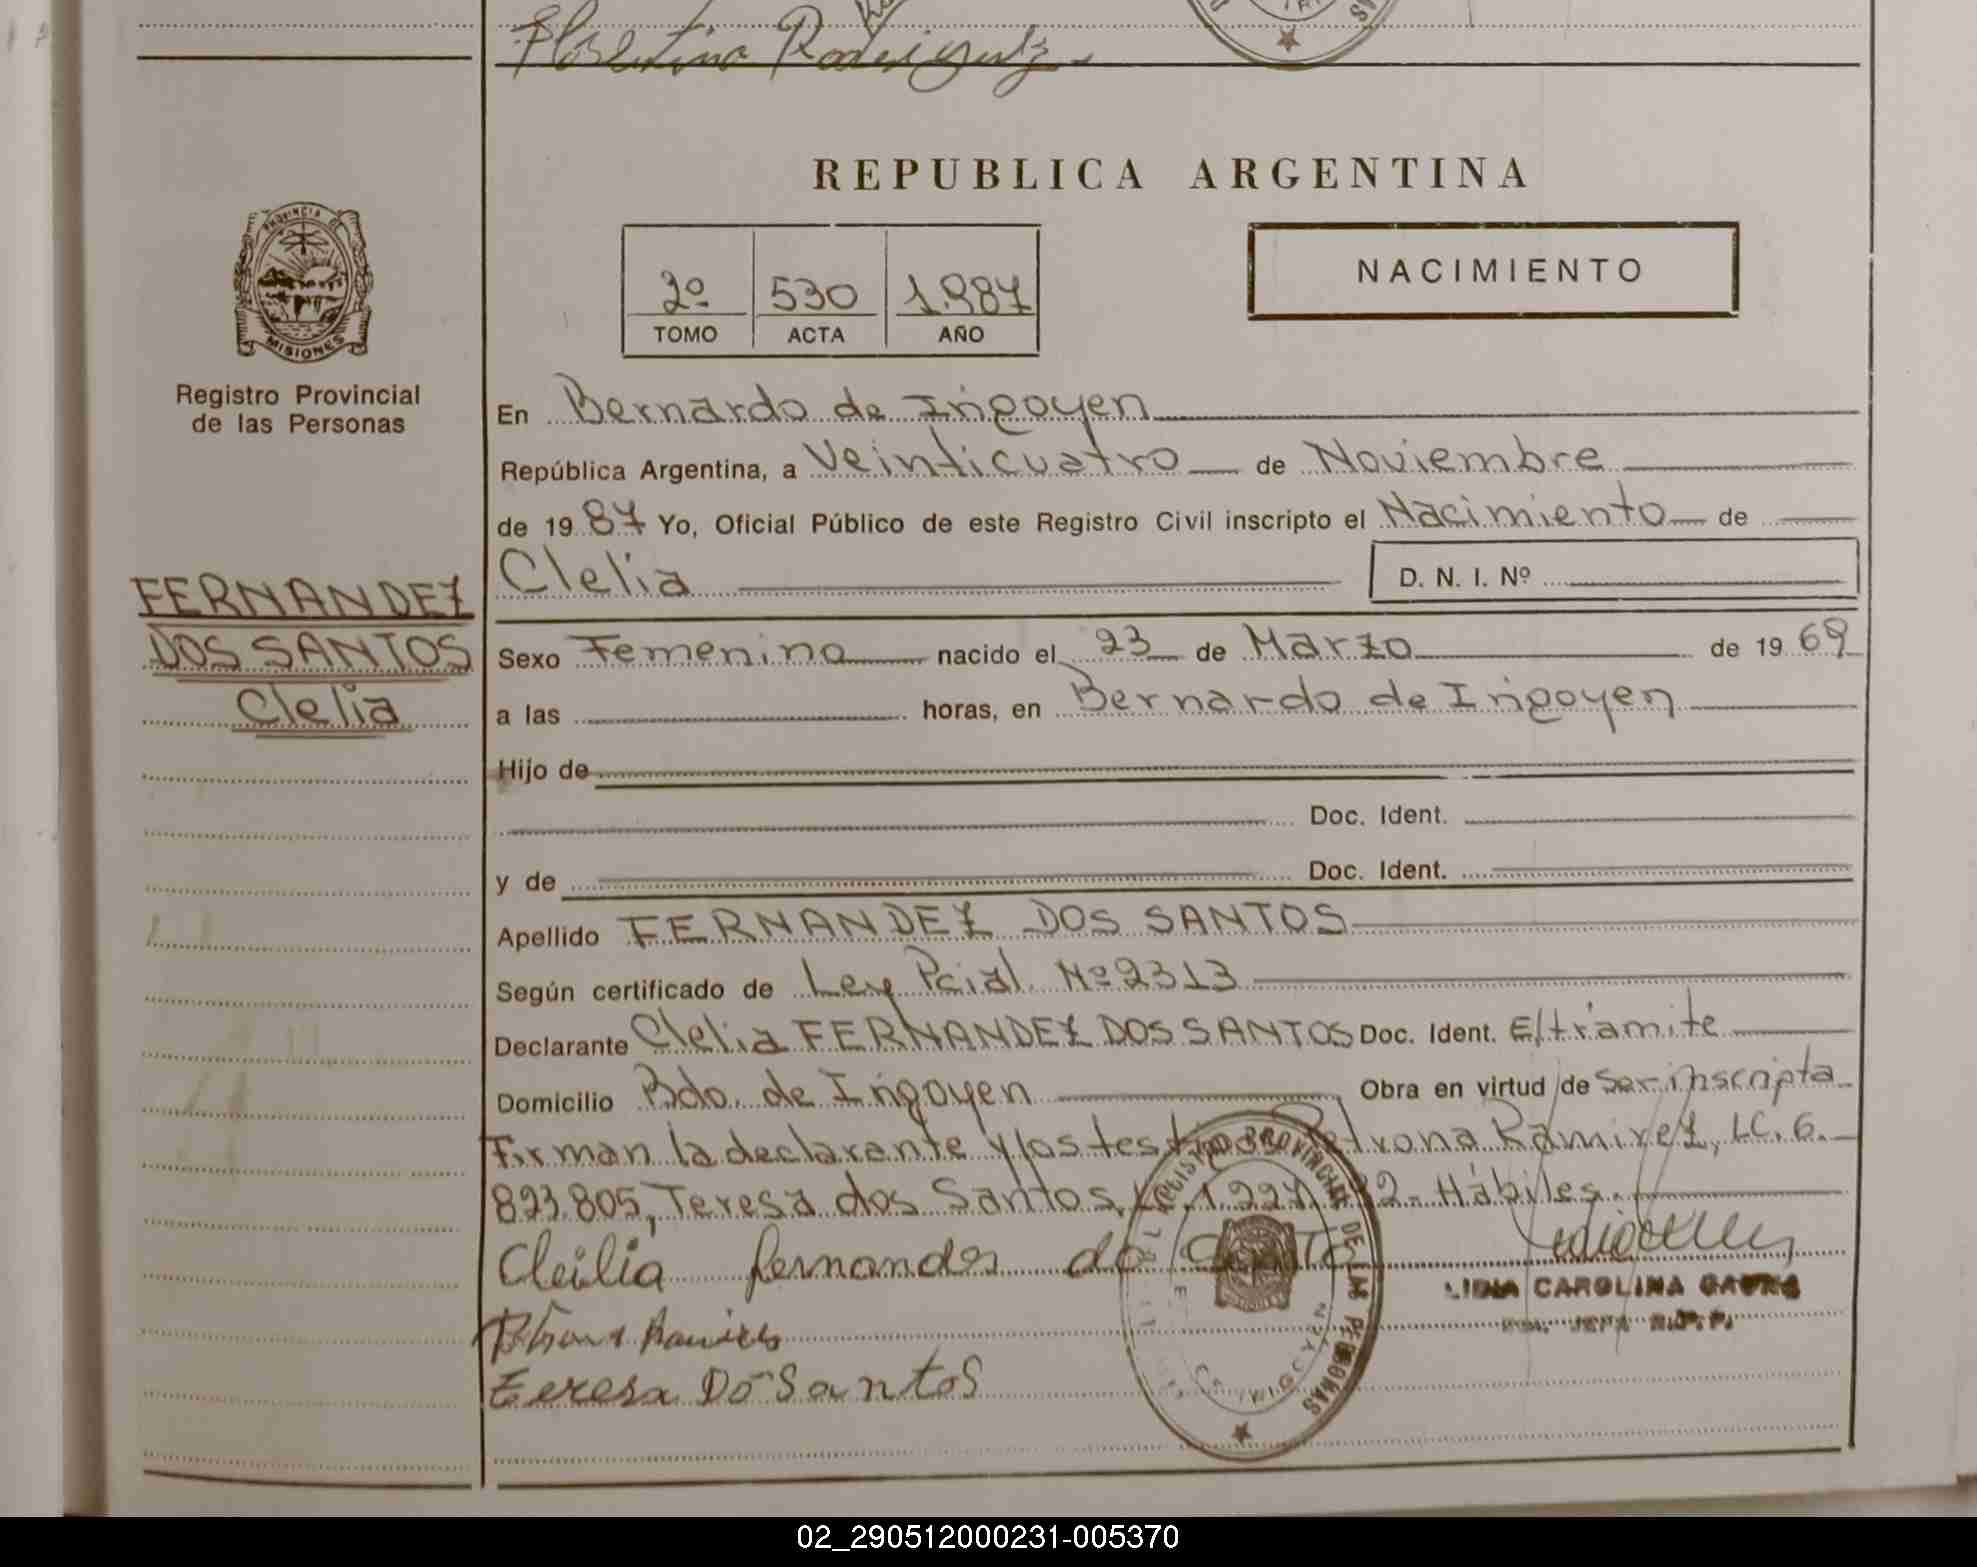 Florentino Rodriguez
REPUBLICA ARGENTINA
PROVINCIA DE
MISIONES
Registro Provincial
de las Personas
2º 530 1.987
TOMO ACTA AÑO
NACIMIENTO
En Bernardo de Irigoyen
República Argentina, a Veinticuatro de Noviembre
de 1987 Yo, Oficial Público de este Registro Civil inscripto el Nacimiento de
Clelia D. N. I. Nº
FERNANDEZ
DOS SANTOS
Clelia
Sexo Femenino nacido el 23 de Marzo de 1969
a las horas, en Bernardo de Irigoyen
Hijo de
Doc. Ident.
y de Doc. Ident.
Apellido FERNANDEZ DOS SANTOS
Según certificado de Ley Pcial. Nº 2313
Declarante Clelia FERNANDEZ DOS SANTOS Doc. Ident. E/trámite
Domicilio Bdo. de Irigoyen Obra en virtud de Ser inscripta
Firman la declarante y los testigos Petrona Ramirez, LC. 6.
823.805, Teresa dos Santos, Hábiles.
Cleilia fernandes do
REGISTRO PROVINCIAL DE LAS PERSONAS
LIDIA CAROLINA
Teresa Do Santos
02_290512000231-005370